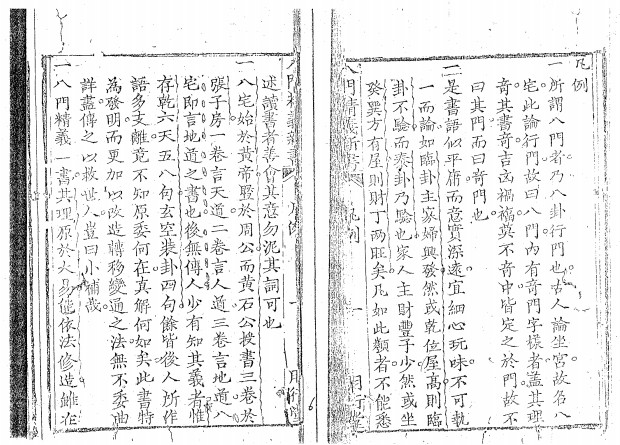 凡例
一所謂八門者乃八卦行門也古人論坐宮故名八
宅此論行門故曰八門內有奇門字樣者蓋其理
奇其書奇吉凶禍福莫不奇中皆定之於門故不
曰其門而曰奇門也
二是書語似平庸而意實深遠宜細心玩味不可執
一而論如臨卦主家婦興發然或乾位屋高則臨
卦不驗而泰卦乃驗也家人主財豐子少然或坐
癸巽方有屋則財丁两旺矣凡如此類者不能悉
八門精義新書 凡例 一
述讀書者善會其意勿泥其詞可也
一八宅始於黃帝盛於周公而黃石公授書三卷於
張子房一卷言天道二卷言人道三卷言地道八
宅即言地道之書也後無傳人少有知其義者惟
存乾六天五八句玄空裝卦四句餘皆後人所作
語多支離竟不知原委何在真解何如矣此書特
為發明而更加以改造轉移變通之法無不委曲
詳盡傳之以救世人豈曰小補哉
一八門精義一書其理原於大易能依法修造雖在